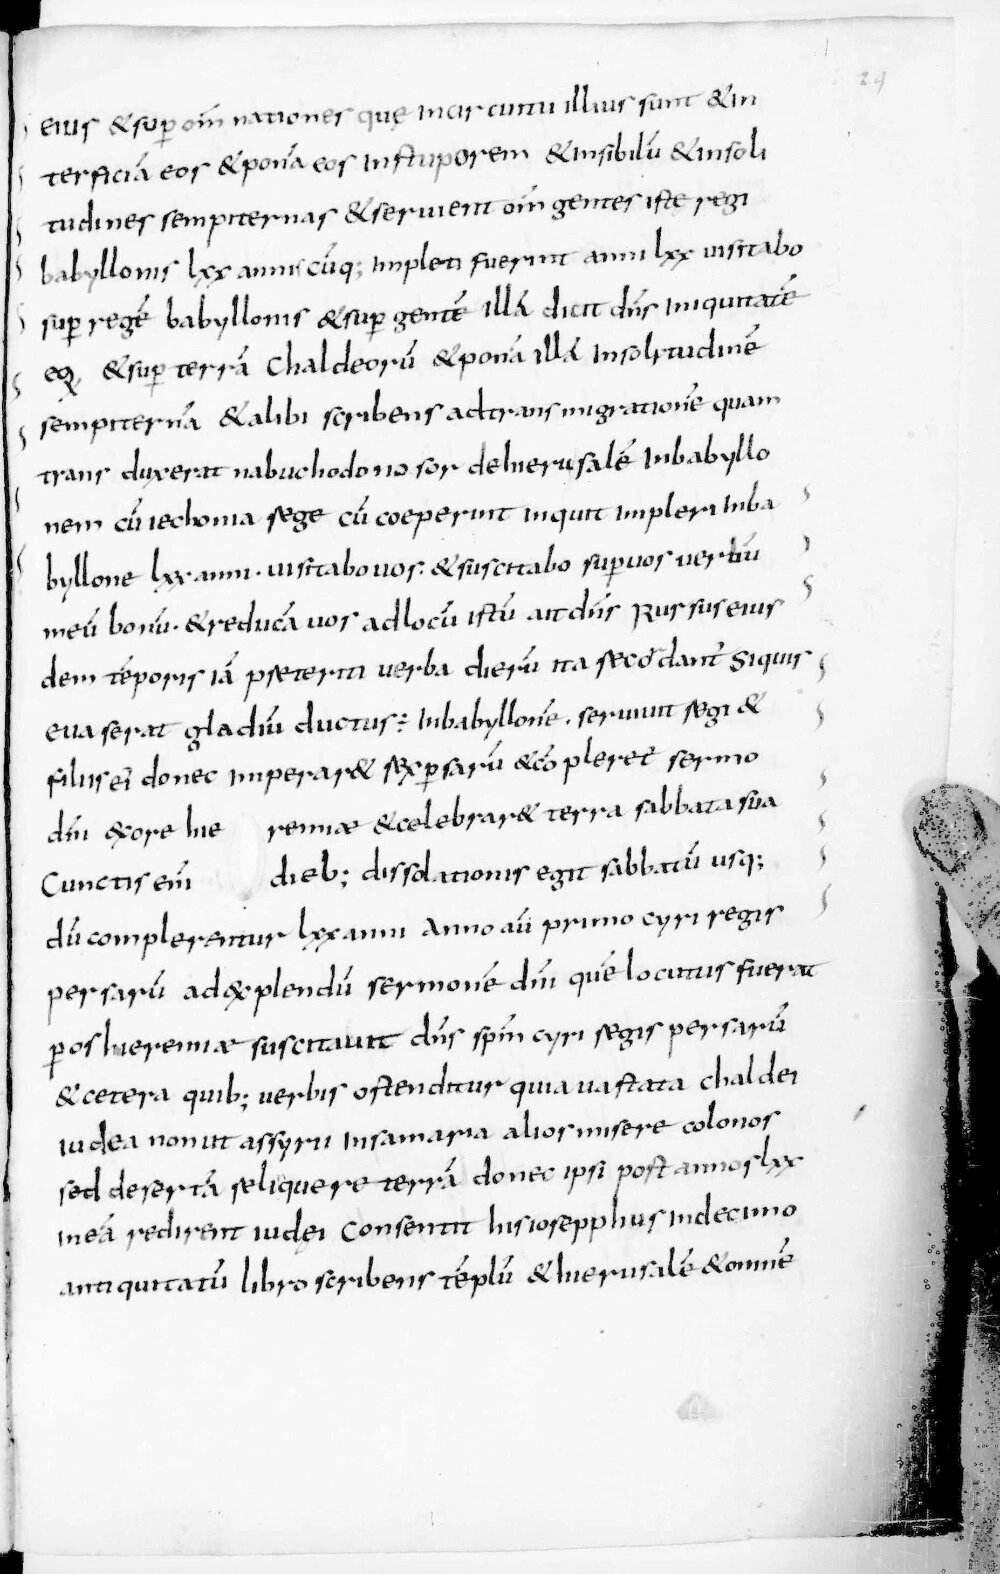 24
eius & sup om̄ nationes quę incircuitu illius sunt & in
terficiā eos & ponā eos instuporem & insibilū & insoli
tudines sempiternas & seruient om̄ gentes istę regi
babyllonis lxx annis cūq; impleti fuerint anni lxx uisitabo
sup regē babyllonis & sup gentē illā dicit dn̄s iniquitatē
eoꝝ & sup terrā chaldeorū & ponā illā insolitudinē
sempiternā & alibi scribens adtransmigrationē quam
trans duxerat nabuchodonosor dehierusalē inbabyllo
nem cū iechonia rege cū coeperint inquit impleri inba
byllone lxx anni · uisitabo uos · & suscitabo sup uos uerbū
meū bonū · & reducā uos adlocū istū ait dn̄s Rursus eius
dem tēporis iā pręteriti uerba dierū ita recōdant Siquis
euaserat gladiū ductus inbabyllonē · seruiuit regi &
filiis ei donec imperar& rex ꝑsarū & cōpleret sermo
dn̄i exore hieremiæ & celebrar& terra sabbata sua
Cunctis em̄ dieb; dissolationis egit sabbatū usq;
dū complerentur lxx anni Anno aūt primo cyri regis
persarū adexplendū sermonē dn̄i quē locutus fuerat
ꝑ os hieremiæ suscitauit dn̄s spm̄ cyri regis persarū
& cetera quib; uerbis ostenditur quia uastata chaldei
iudea non ut assyrii insamaria alios misere colonos
sed desertā reliquere terrā donec ipsi post annos lxx
ineā redirent iudei Consentit his iosepphus indecimo
antiquitatū libro scribens tēplū & hierusalē & omnē